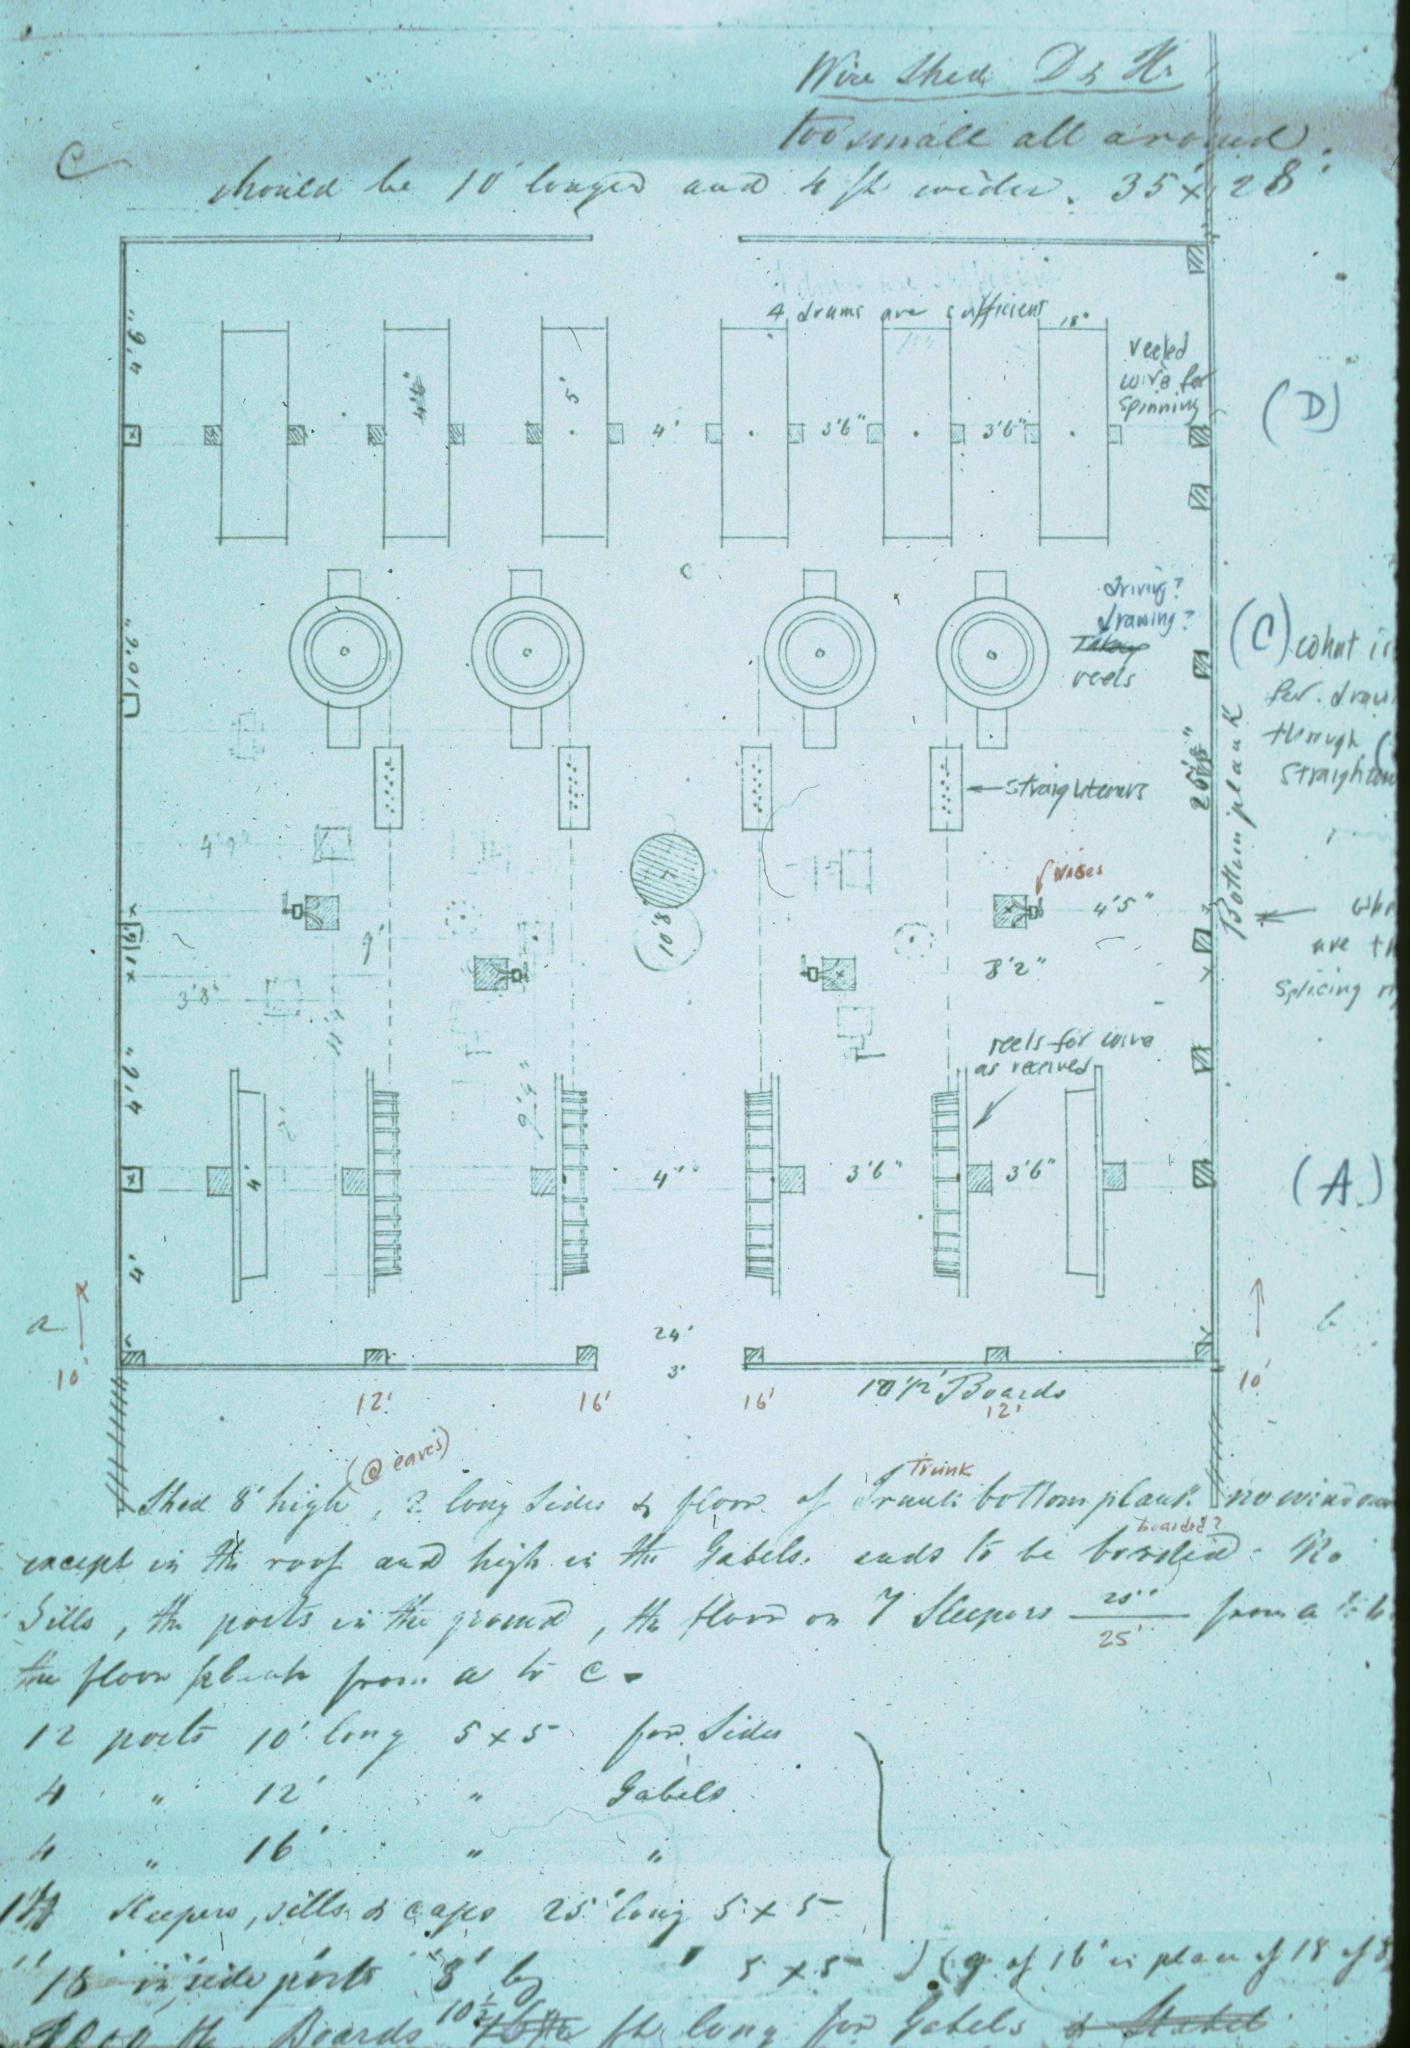 Wire Shed D & H.
too small all around.
C
should be 10' longer and 4 ft. wider. 35' x 28'
4 drums are sufficient
18"
4'.6"
4'6"
5'
4'
3'6"
3'6"
reeled
wire for
spinning
(D)
10'.6"
driving?
drawing?
Takeup
reels
(C) what is
for draw
through (
straighten
straighteners
25'6"
Bottom plank
4'9"
wises
4'5"
9'
10'8"
8'2"
3'8"
are th
splicing
reels for wire
as received
4'.6"
9'4"
4'
4'
3'6"
3'6"
(A)
4'
a
10'
24'
3'
b
10'
12'
16'
16'
10 1/2' Boards
12'
(@ eaves)
Trunk
Shed 8' high, 2 long sides & floor of Trunk bottom plank. no windows
boarded?
except in the roof and high in the Gabels. ends to be boarded. No
Sills, the posts in the ground, the floor on 7 Sleepers 25' from a to b
25'
the floor plank from a to c.
12 posts 10' long 5 x 5 for Sides
4 " 12' " Gabels
4 " 16' " "
Sleepers, sills & caps 25' long 5 x 5
18 inside posts 8' lg " 5 x 5 (9 of 16' in place of 18 of 8'
Boards 10 1/2 ft long for Gabels